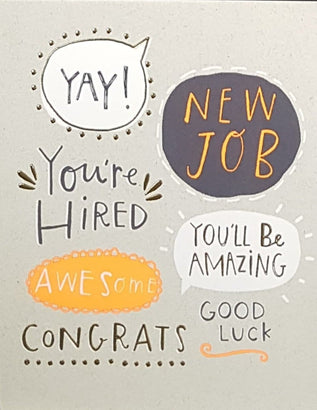 YAY!
NEW
JOB
You're
HiRED
YOU'LL Be
AMAZiNG
AWESome
GOOD
LUCK
CONGRATS